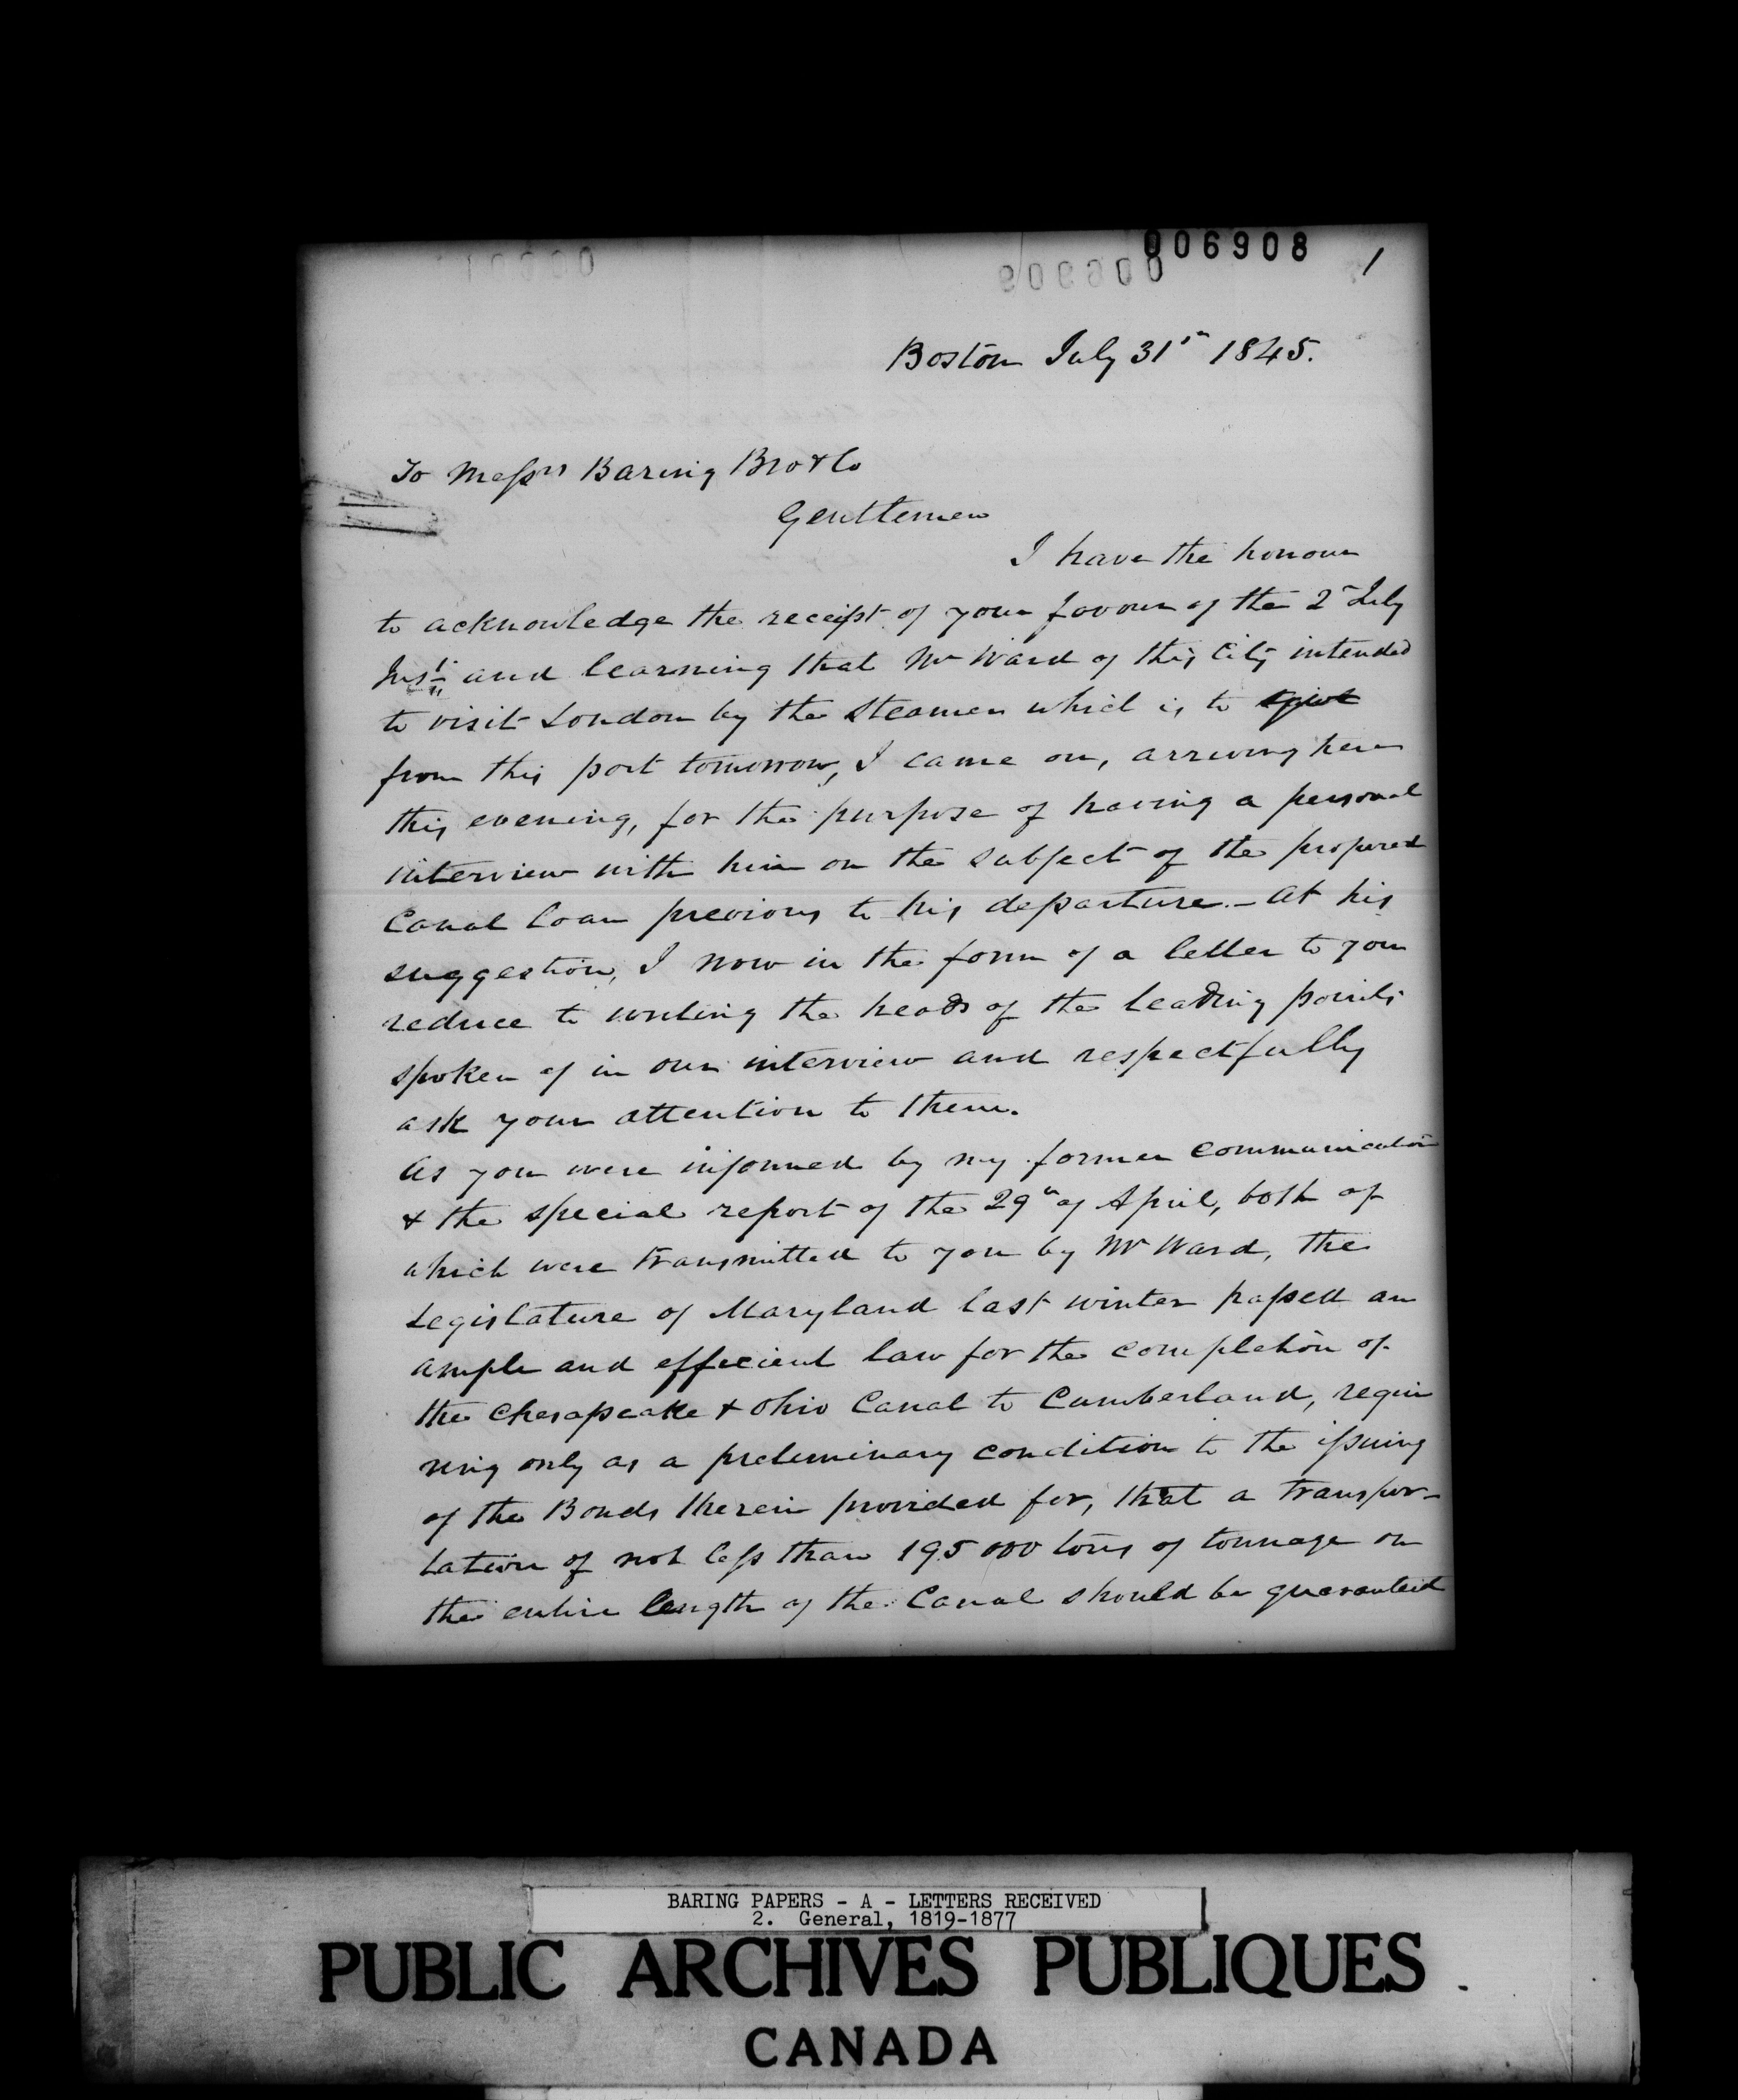 006908 1
Boston July 31st 1845.
To Messrs Baring Bro & Co
Gentlemen
I have the honour
to acknowledge the receipt of your favour of the 2d July
Inst and learning that Mr Ward of this City intended
to visit London by the Steamer which is to
from this port tomorrow, I came on, arriving here
this evening, for the purpose of having a personal
interview with him on the subject of the proposed
Canal loan previous to his departure. - At his
suggestion, I now in the form of a letter to you
reduce to writing the heads of the leading points
spoken of in our interview and respectfully
ask your attention to them.
As you were informed by my former communication
& the special report of the 29th of April, both of
which were transmitted to you by Mr Ward, the
Legislature of Maryland last winter passed an
ample and efficient law for the completion of
the Chesapeake & Ohio Canal to Cumberland, requi
ring only as a preliminary condition to the issuing
of the Bonds therein provided for, that a transpor-
tation of not less than 195 000 tons of tonnage on
the entire length of the Canal should be guaranteed
BARING PAPERS - A - LETTERS RECEIVED
2. General, 1819-1877
PUBLIC ARCHIVES PUBLIQUES
CANADA